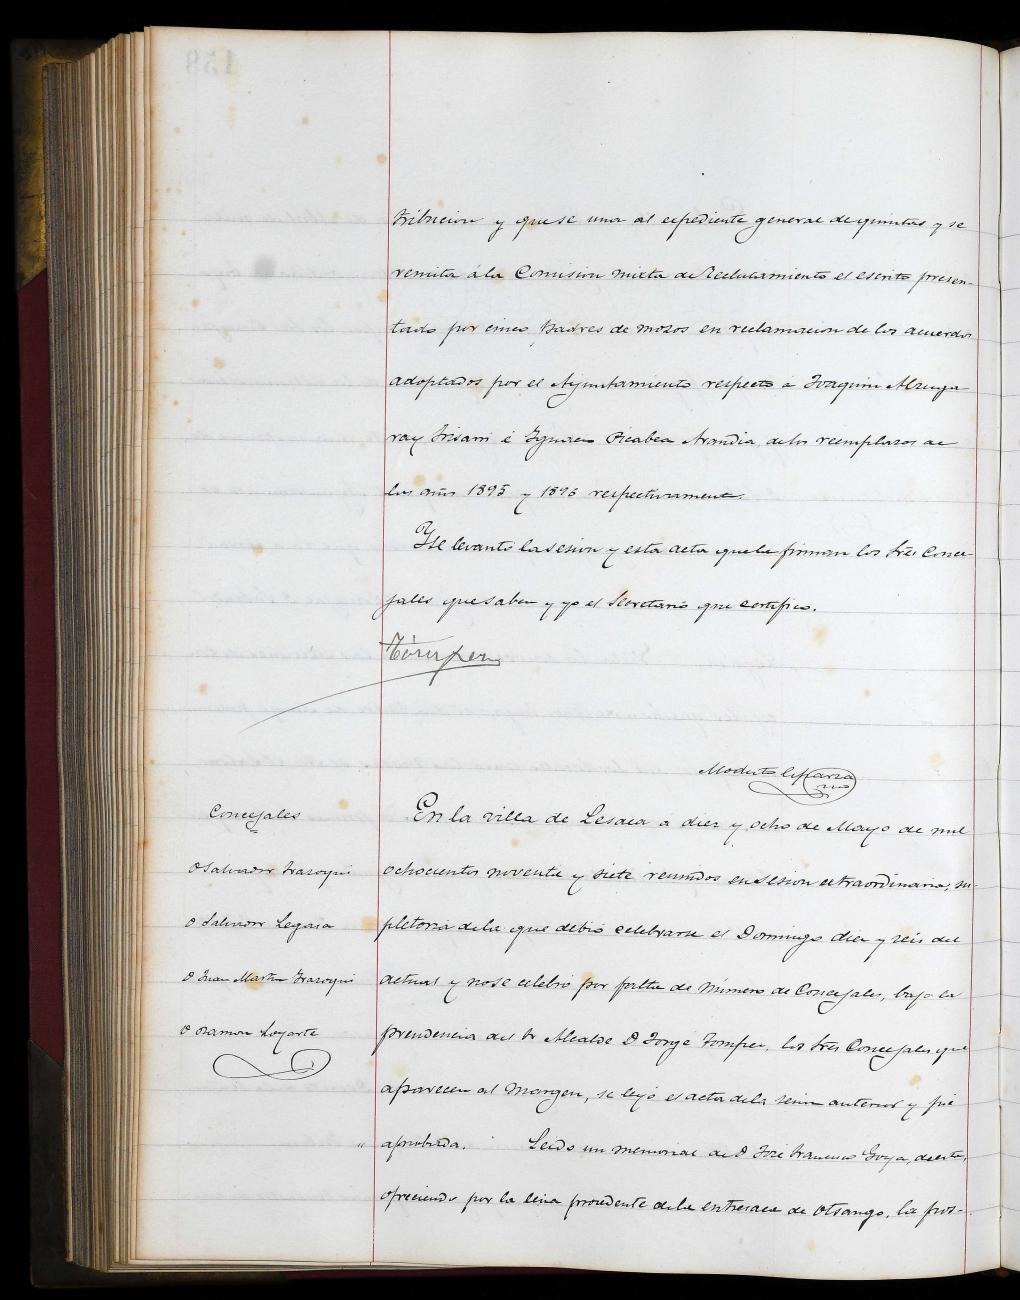 tribucion y que se una al espediente general de quintas y se
remita á la Comision mixta de Reclutamiento el escrito presen-
tado por cinco padres de mozos en reclamacion de los acuerdos
adoptados por el Ayuntamiento respecto á Joaquin Alzuga
ray Irisarri é Ignacio Picabea Arandia, de los reemplazos de
los años 1895 y 1896 respectivamente.
Y se levantó la sesion y esta acta que la firman los Sres Conce-
jales que saben y yo el Secretario que certifico.
Modesto Lizarza
Concejales
En la villa de Lesaca a diez y ocho de Mayo de mil
D Salvador Irazoqui
ochocientos noventa y siete reunidos en sesion extraordinaria, su-
D Salvador Legasa
pletoria de la que debió celebrarse el Domingo diez y seis del
D Juan Martin Irazoqui
actual y no se celebró por falta de número de Concejales, bajo la
D Ramon Loyarte
presidencia del Sr Alcalde D Jorge Tompes, los Sres Concejales que
aparecen al margen, se leyó el acta de la sesion anterior y fué
" aprobada. Leido un memorial de D José Francisco Goya, de esta,
ofreciendo por la leña procedente de la entresaca de Otsango, la pos-